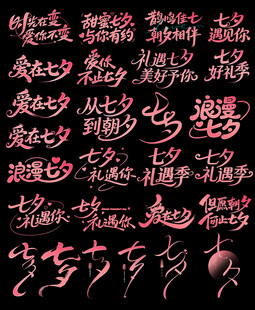 时光在变
爱你不变
甜蜜七夕
与你有约
鹊鸣佳七
朝夕相伴
七夕
遇见你
爱在七夕
爱你
不止七夕
礼遇七夕
美好予你
七夕
好礼季
爱在七夕
爱在七夕
从七夕
到朝夕
七夕
浪漫
七夕
浪漫七夕
七夕
礼遇你
七夕
礼遇季
七夕
礼遇季
七夕
礼遇你
七夕
礼遇你
爱在七夕
但愿朝夕
何止七夕
七夕
七夕
七夕
七夕
七夕
七夕